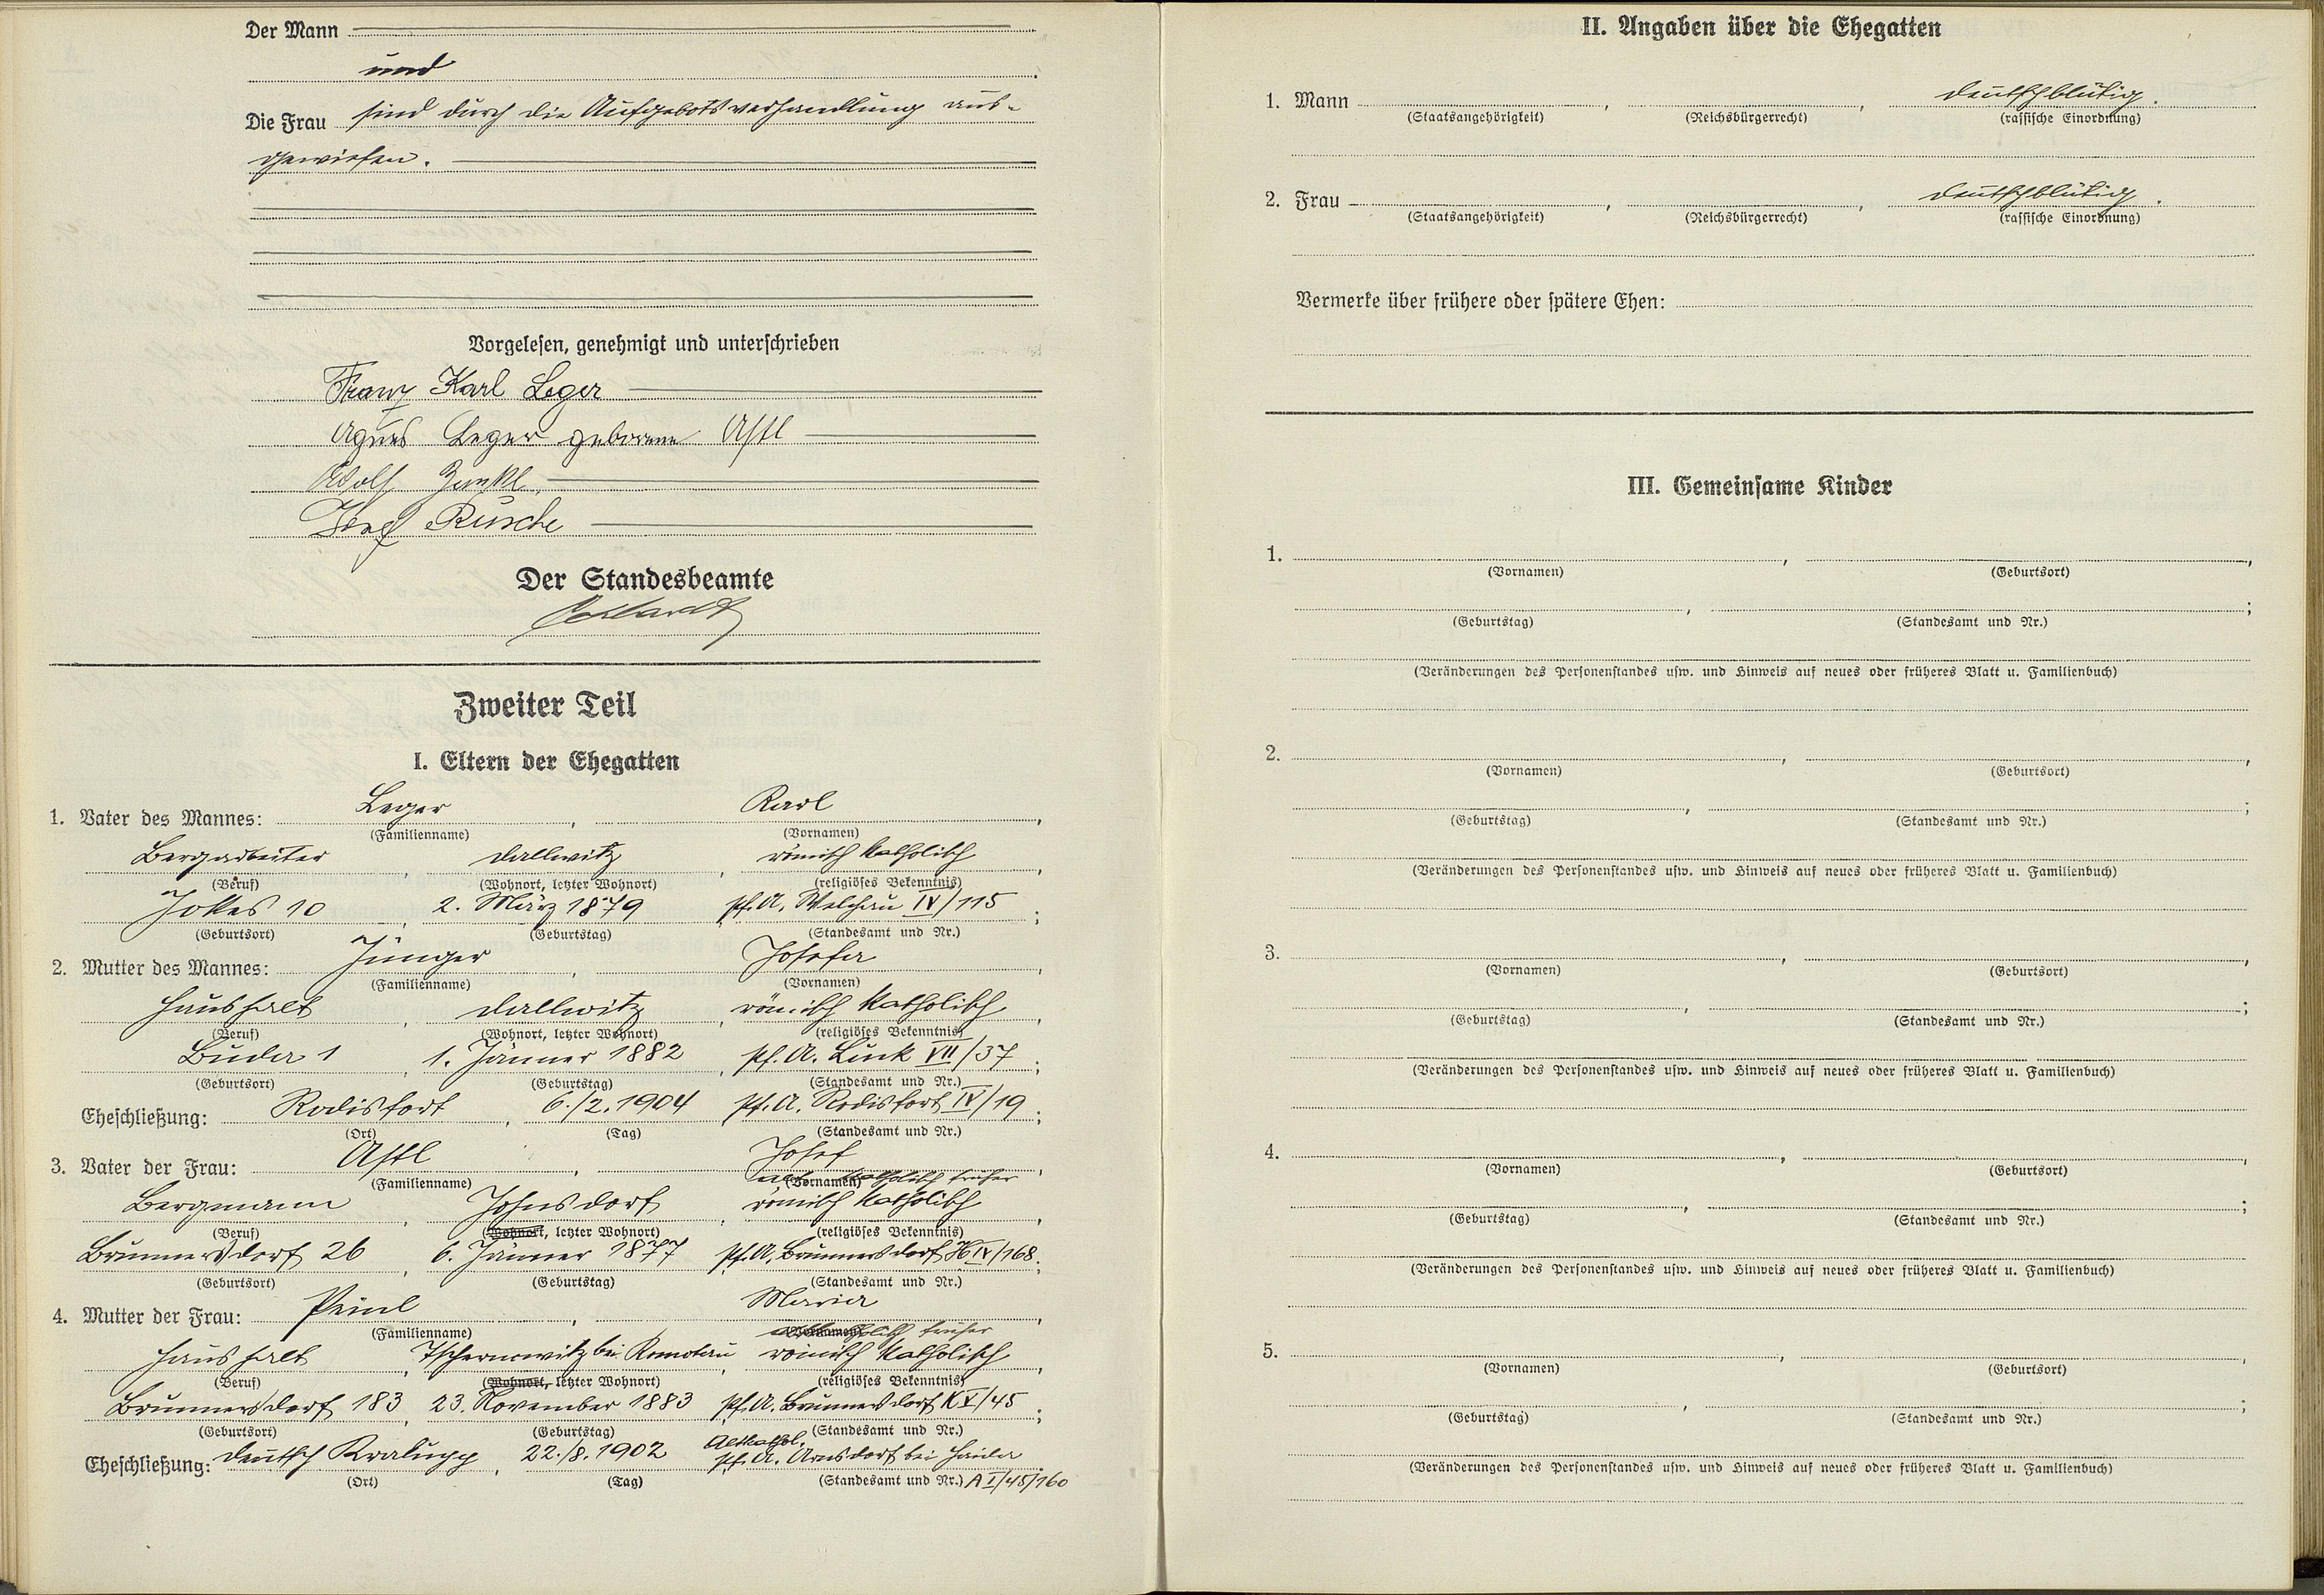 Der Mann
und
Die Frau sind durch die Aufgebotsverhandlung aus-
gewiesen.
Vorgelesen, genehmigt und unterschrieben
Franz Karl Leger
Agnes Leger geborene Astl
Adolf
Josef Rusche
Der Standesbeamte
Zweiter Teil
I. Eltern der Ehegatten
1. Vater des Mannes: Leger, Karl,
(Familienname) (Vornamen)
Bergarbeiter, Dallwitz, römisch katholisch,
(Beruf) (Wohnort, letzter Wohnort) (religiöses Bekenntnis)
Jokes 10, 2. März 1879, Pf. A. Welchau IV/115;
(Geburtsort) (Geburtstag) (Standesamt und Nr.)
2. Mutter des Mannes: Jünger, Josefa,
(Familienname) (Vornamen)
Haushalt, Dallwitz, römisch katholisch,
(Beruf) (Wohnort, letzter Wohnort) (religiöses Bekenntnis)
Luder 1, 1. Jänner 1882, Pf. A. Luck VII/37;
(Geburtsort) (Geburtstag) (Standesamt und Nr.)
Eheschließung: Rodisfort, 6./2.1904 Pf. A. Rodisfort IV/19;
(Ort) (Tag) (Standesamt und Nr.)
3. Vater der Frau: Astl, Josef,
(Familienname) (Vornamen) katholisch früher
Bergmann, Johnsdorf, römisch katholisch,
(Beruf) (Wohnort, letzter Wohnort) (religiöses Bekenntnis)
Brunnersdorf 26, 6. Jänner 1877 Pf. A. Brunnersdorf H IV/168;
(Geburtsort) (Geburtstag) (Standesamt und Nr.)
4. Mutter der Frau: Peinl, Maria,
(Familienname) (Vornamen) früher
Haushalt, Tschernowitz bei Komotau römisch katholisch,
(Beruf) (Wohnort, letzter Wohnort) (religiöses Bekenntnis)
Brunnersdorf 183, 23. November 1883 Pf. A. Brunnersdorf K V/45;
(Geburtsort) (Geburtstag) (Standesamt und Nr.)
Altkathol.
Eheschließung: Deutsch Kralupp, 22./8.1902 Pf. A. Arnsdorf bei Haida
(Ort) (Tag) (Standesamt und Nr.) A I/48/160
II. Angaben über die Ehegatten
1. Mann , , deutschblütig.
(Staatsangehörigkeit) (Reichsbürgerrecht) (rassische Einordnung)
2. Frau , , deutschblütig.
(Staatsangehörigkeit) (Reichsbürgerrecht) (rassische Einordnung)
Vermerke über frühere oder spätere Ehen:
III. Gemeinsame Kinder
1. , ,
(Vornamen) (Geburtsort)
, ;
(Geburtstag) (Standesamt und Nr.)
(Veränderungen des Personenstandes usw. und Hinweis auf neues oder früheres Blatt u. Familienbuch)
2. , ,
(Vornamen) (Geburtsort)
, ;
(Geburtstag) (Standesamt und Nr.)
(Veränderungen des Personenstandes usw. und Hinweis auf neues oder früheres Blatt u. Familienbuch)
3. , ,
(Vornamen) (Geburtsort)
, ;
(Geburtstag) (Standesamt und Nr.)
(Veränderungen des Personenstandes usw. und Hinweis auf neues oder früheres Blatt u. Familienbuch)
4. , ,
(Vornamen) (Geburtsort)
, ;
(Geburtstag) (Standesamt und Nr.)
(Veränderungen des Personenstandes usw. und Hinweis auf neues oder früheres Blatt u. Familienbuch)
5. , ,
(Vornamen) (Geburtsort)
, ;
(Geburtstag) (Standesamt und Nr.)
(Veränderungen des Personenstandes usw. und Hinweis auf neues oder früheres Blatt u. Familienbuch)